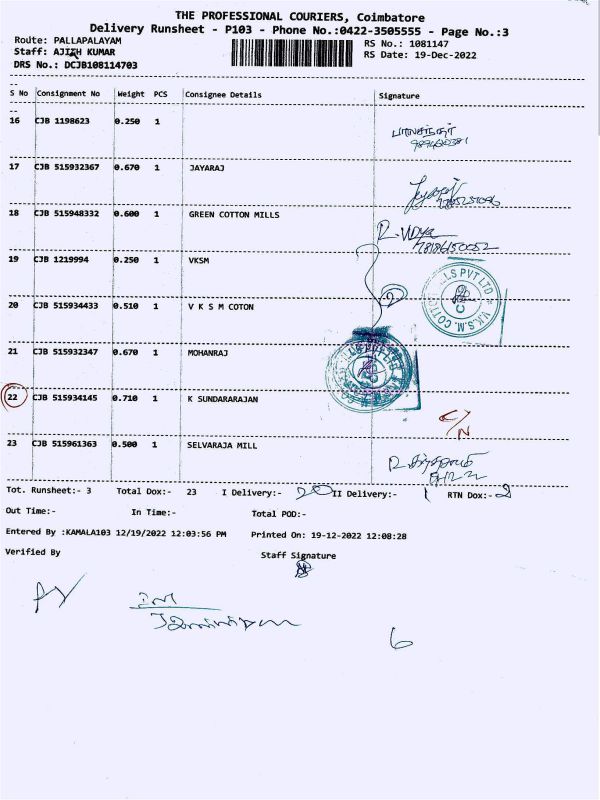 THE PROFESSIONAL COURIERS, Coimbatore
Delivery Runsheet - P103 - Phone No.:0422-3505555 - Page No.:3
Route: PALLAPALAYAM
RS No.: 1081147
Staff: AJITH KUMAR
RS Date: 19-Dec-2022
DRS No.: DCJB108114703
S No Consignment No Weight PCS Consignee Details Signature
16 CJB 1198623 0.250 1
17 CJB 515932367 0.670 1 JAYARAJ
18 CJB 515948332 0.600 1 GREEN COTTON MILLS
R. Vidya
19 CJB 1219994 0.250 1 VKSM
20 CJB 515934433 0.510 1 V K S M COTON
21 CJB 515932347 0.670 1 MOHANRAJ
22 CJB 515934145 0.710 1 K SUNDARARAJAN
C/N
23 CJB 515961363 0.500 1 SELVARAJA MILL
Tot. Runsheet:- 3 Total Dox:- 23 I Delivery:- 20 II Delivery:- 1 RTN Dox:- 2
Out Time:- In Time:- Total POD:-
Entered By :KAMALA103 12/19/2022 12:03:56 PM Printed On: 19-12-2022 12:08:28
Verified By Staff Signature
6